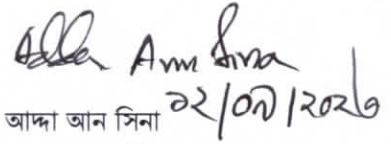 Adda Ann Sina
আদ্দা আন সিনা ১২/০৯/২০২৩